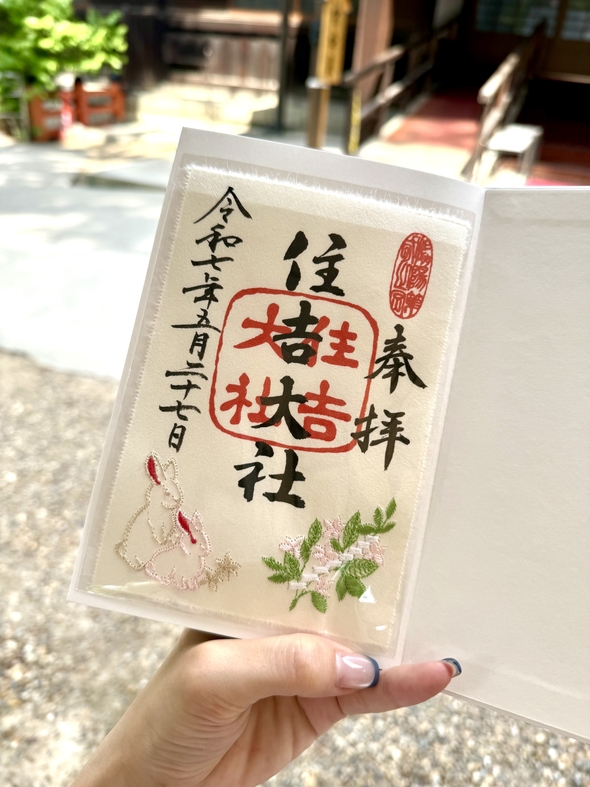 奉拝
住吉大社
住吉
大社
令和七年五月二十七日